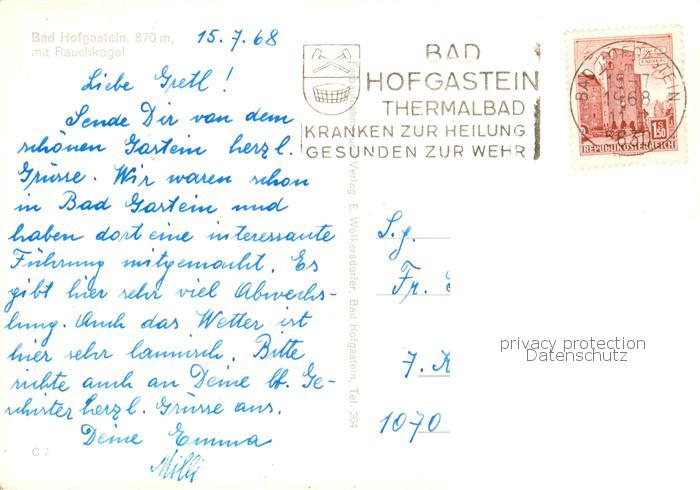 Bad Hofgastein, 870 m,
mit Rauchkogel
15.7.68
Liebe Gretl!
Sende Dir von dem
schönen Gastein herzl.
Grüsse. Wir waren schon
in Bad Gastein und
haben dort eine interessante
Führung mitgemacht. Es
gibt hier sehr viel Abwechs-
lung. Auch das Wetter ist
hier sehr launisch. Bitte
richte auch an Deine lb. Ge-
schister herzl. Grüsse aus.
Deine Emma
Milli
C 7
Verlag E. Wolkersdorfer, Bad Hofgastein, Tel. 364
BAD
HOFGASTEIN
THERMALBAD
KRANKEN ZUR HEILUNG
GESUNDEN ZUR WEHR
BAD HOFGASTEIN
1968
1.50
REPUBLIK ÖSTERREICH
S.g.
Fr.
7.
1070
privacy protection
Datenschutz